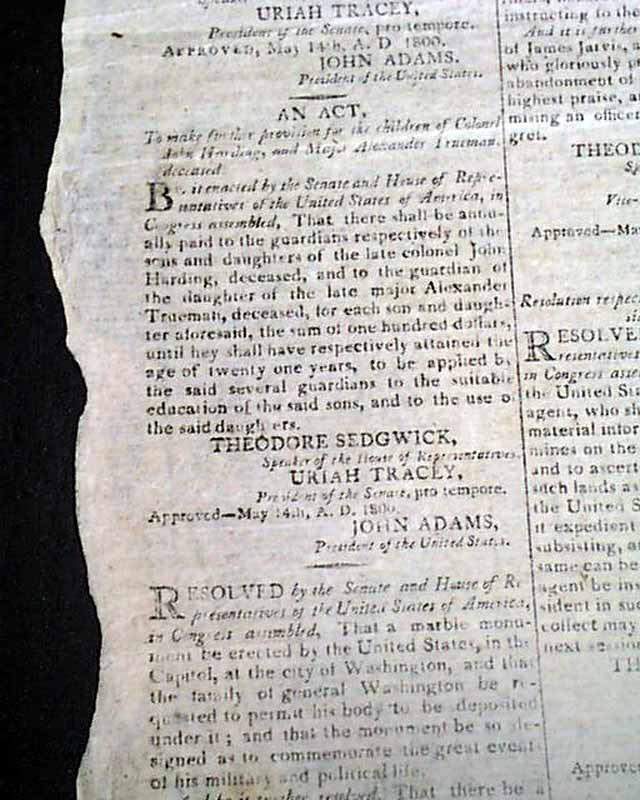 URIAH TRACEY,
President of the Senate, pro tempore.
APPROVED, May 14th, A. D. 1800.
JOHN ADAMS.
President of the United States.
AN ACT,
To make further provision for the children of Colonel
John Harding, and Major Alexander Trueman,
deceased
BE it enacted by the Senate and House of Repre-
sentatives of the United States of America, in
Congress assembled, That there shall be annu-
ally paid to the guardians respectively of the
sons and daughters of the late colonel John
Harding, deceased, and to the guardian of
the daughter of the late major Alexander
Trueman, deceased, for each son and daugh-
ter aforesaid, the sum of one hundred dollars,
until hey shall have respectively attained the
age of twenty one years, to be applied by
the said several guardians to the suitable
education of the said sons, and to the use of
the said daugh ers.
THEODORE SEDGWICK,
Speaker of the House of Representatives.
URIAH TRACEY,
President of the Senate, pro tempore.
Approved—May 14th, A. D. 1800.
JOHN ADAMS,
President of the United States.
RESOLVED by the Senate and House of Re
presentatives of the United States of America,
in Congress assembled, That a marble monu-
ment be erected by the United States, in the
Capitol, at the city of Washington, and that
the family of general Washington be re-
quested to permit his body to be deposited
under it; and that the monument be so de-
signed as to commemorate the great events
of his military and political life.
And be it further resolved, That there be a
instructing to the
And it is further
of James Jarvis, a
who gloriously pe
abandonment of
highest praise, a
mising an officer
gret.
THEOD
Sp
Vice-
Approved—May
Resolution respec
RESOLVE
resentatives
in Congress asse
the United Sta
agent, who sh
material infor
mines on the
and to ascert
such lands as
the United S
it expedient
subsisting, a
same can be
agent be ins
sident in suc
collect may
next session
TH
Approved